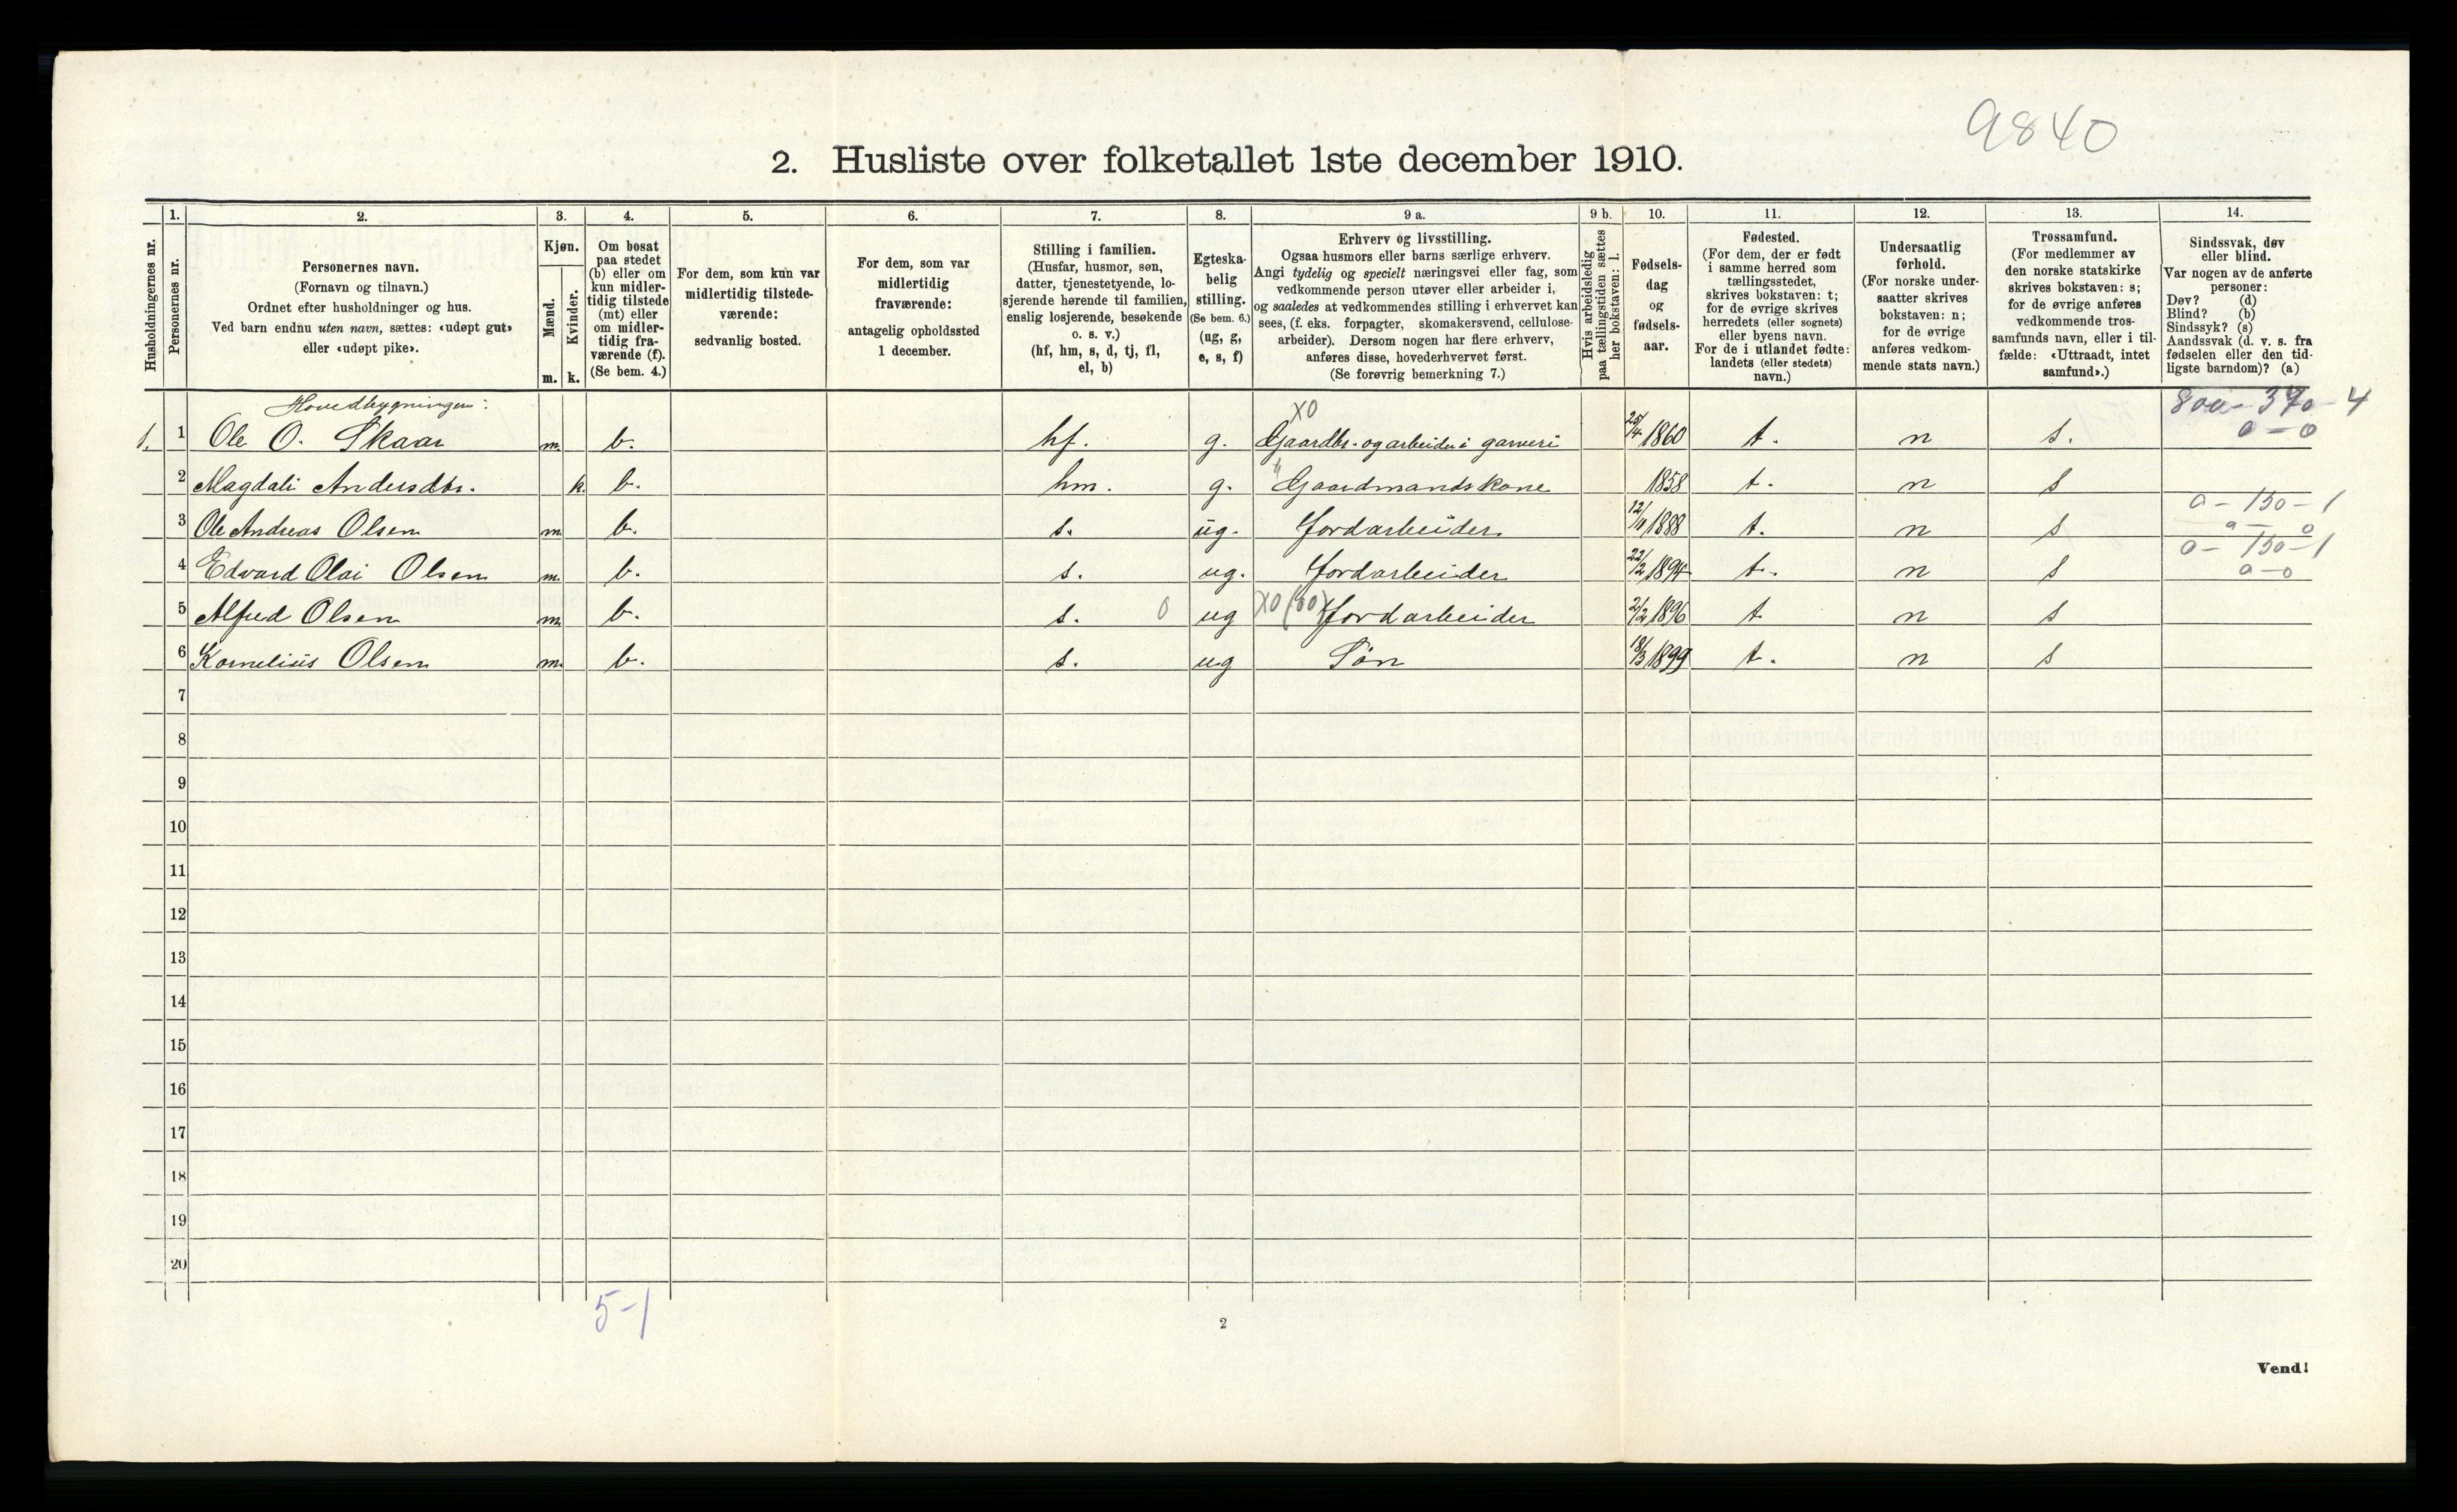 9840
2. Husliste over folketallet 1ste december 1910.
Husholdningernes nr.
1.
Personernes nr.
2.
Personernes navn.
(Fornavn og tilnavn.)
Ordnet efter husholdninger og hus.
Ved barn endnu uten navn, sættes: «udøpt gut»
eller «udøpt pike».
3.
Kjøn.
Mænd.
Kvinder.
m. k.
4.
Om bosat
paa stedet
(b) eller om
kun midler-
tidig tilstede
(mt) eller
om midler-
tidig fra-
værende (f).
(Se bem. 4.)
5.
For dem, som kun var
midlertidig tilstede-
værende:
sedvanlig bosted.
6.
For dem, som var
midlertidig
fraværende:
antagelig opholdssted
1 december.
7.
Stilling i familien.
(Husfar, husmor, søn,
datter, tjenestetyende, lo-
sjerende hørende til familien,
enslig losjerende, besøkende
o. s. v.)
(hf, hm, s, d, tj, fl,
el, b)
8.
Egteska-
belig
stilling.
(Se bem. 6.)
(ug, g,
e, s, f)
9 a.
Erhverv og livsstilling.
Ogsaa husmors eller barns særlige erhverv.
Angi tydelig og specielt næringsvei eller fag, som
vedkommende person utøver eller arbeider i,
og saaledes at vedkommendes stilling i erhvervet kan
sees, (f. eks. forpagter, skomakersvend, cellulose-
arbeider). Dersom nogen har flere erhverv,
anføres disse, hovederhvervet først.
(Se forøvrig bemerkning 7.)
9 b.
Hvis arbeidsledig
paa tællingstiden sættes
her bokstaven: l.
10.
Fødsels-
dag
og
fødsels-
aar.
11.
Fødested.
(For dem, der er født
i samme herred som
tællingsstedet,
skrives bokstaven: t;
for de øvrige skrives
herredets (eller sognets)
eller byens navn.
For de i utlandet fødte:
landets (eller stedets)
navn.)
12.
Undersaatlig
forhold.
(For norske under-
saatter skrives
bokstaven: n;
for de øvrige
anføres vedkom-
mende stats navn.)
13.
Trossamfund.
(For medlemmer av
den norske statskirke
skrives bokstaven: s;
for de øvrige anføres
vedkommende tros-
samfunds navn, eller i til-
fælde: «Uttraadt, intet
samfund».)
14.
Sindssvak, døv
eller blind.
Var nogen av de anførte
personer:
Døv? (d)
Blind? (b)
Sindssyk? (s)
Aandssvak (d. v. s. fra
fødselen eller den tid-
ligste barndom)? (a)
Hovedbygningen: XO
1. 1 Ole O. Skaar m. b. hf. g. Gaardbr. og arbeider i garveri 25/4 1860 t. n s. a - 0
2 Magdali Andersdtr. k. b. hm. g. Gaardmandskone 1858 t. n s
a - 150 - 1
3 Ole Andreas Olsen m b. s. ug. Jordarbeider 1888 t. n s a - 0
0 - 150 - 1
4 Edvard Olai Olsen m. b. s. ug. Jordarbeider 22/2 1894 t. n s a - 0
5 Alfred Olsen m b. s. 0 ug XO Jordarbeider 2/2 1896 t. n s
6 Kornelius Olsen m. b. s. ug Søn 18/3 1899 t. n s
7
8
9
10
11
12
13
14
15
16
17
18
19
20
5-1
2
Vend!